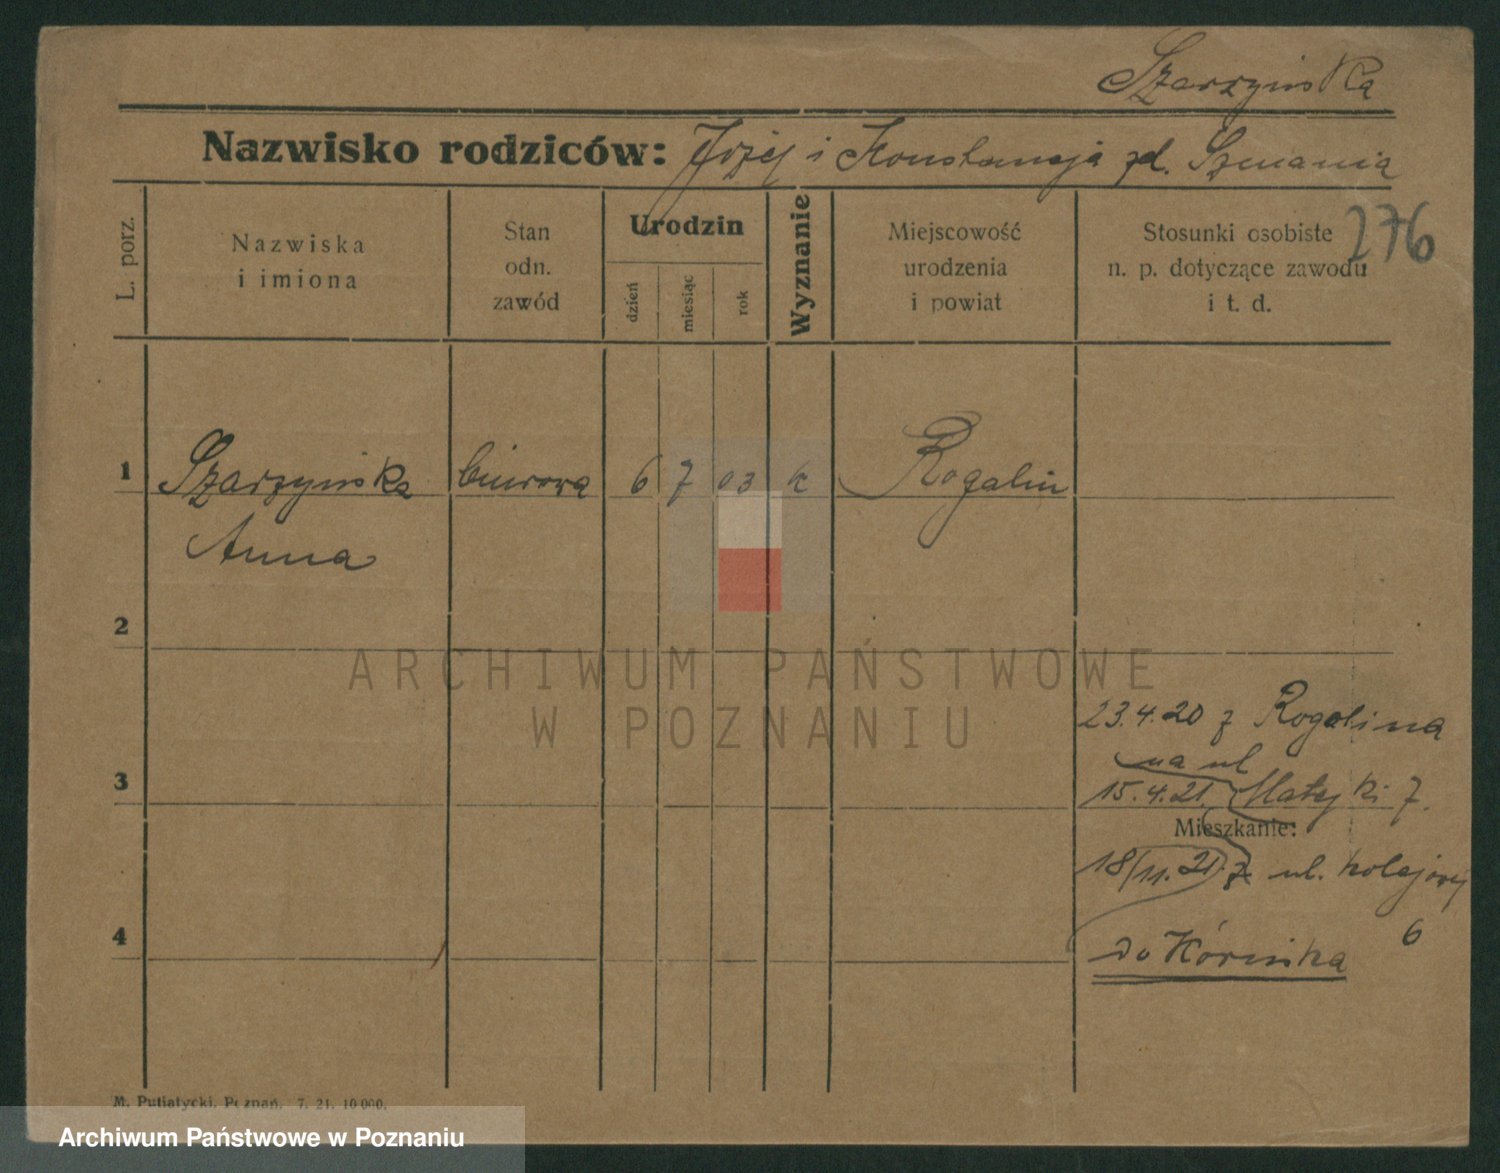 Szarzyńska
Nazwisko rodziców: Józef i Konstancja zd. Szmania
276
L. porz.
Nazwiska
i imiona
Stan
odn.
zawód
Urodzin
dzień
miesiąc
rok
Wyznanie
Miejscowość
urodzenia
i powiat
Stosunki osobiste
n. p. dotyczące zawodu
i t. d.
1 Szarzyńska biurowa 6 7 03 k Rogalin
Anna
2
ARCHIWUM PAŃSTWOWE
W POZNANIU
23.4.20 z Rogalina
na ul
3
15.4.21. Matejki 7.
Mieszkanie:
18/11.21. z ul. Kolejowej
6
4
do Kórnika
M. Putiatycki, Poznań. 7. 21. 10 000.
Archiwum Państwowe w Poznaniu